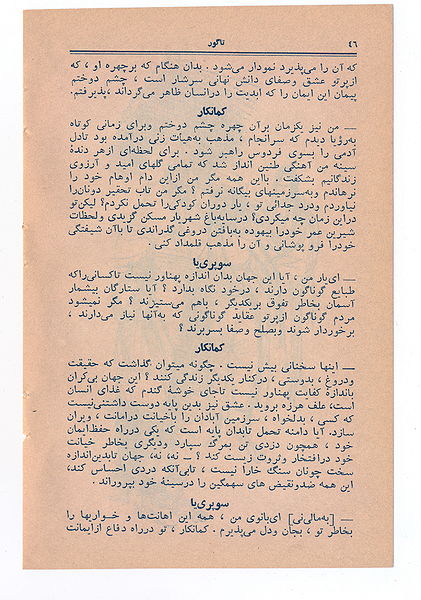 ۴۶
تاگور
که آن را می‌پذیرد نمودار می‌شود . بدان هنگام که برچهره او ، که
ازپرتو عشق وصفای دانش نهانی سرشار است ، چشم دوختم
پیمان این ایمان را که ابدیت را درانسان ظاهر می‌گرداند ،پذیرفتم.
کمانکار
— من نیز یکزمان برآن چهره چشم دوختم وبرای زمانی کوتاه
به‌رؤیا دیدم که سرانجام ، مذهب به‌هیات زنی درآمده بود تادل
آدمی را بسوی فردوس راهبر شود . برای لحظه‌ای ازهر دنده
سینه من آهنگی طنین انداز شد که تمامی گلهای امید و آرزوی
زندگانیم بشکفت . بااین همه مگر من ازاین دام اوهام خود را
نرهاندم وبه‌سرزمینهای بیگانه نرفتم ؟ مگر من تاب تحقیر دونان‌را
نیاوردم ودرد جدائی تو ، یار دوران کودکی‌را تحمل نکردم؟ لیکن‌تو
دراین زمان چه میکردی؟ درسایه‌باغ شهریار مسکن گزیدی ولحظات
شیرین عمر خودرا بیهوده به‌بافتن دروغی گذراندی تا باآن شیفتگی
خودرا فرو پوشانی و آن را مذهب قلمداد کنی .
سوپری‌یا
— ای‌یار من ، آیا این جهان بدان اندازه پهناور نیست تاکسانی‌راکه
طبایع گوناگون دارند ، درخود نگاه بدارد ؟ آیا ستارگان بیشمار
آسمان بخاطر تفوق بریکدیگر ، باهم می‌ستیزند ؟ مگر نمیشود
مردم گوناگون ازپرتو عقاید گوناگونی که به‌آنها نیاز می‌دارند ،
برخوردار شوند وبصلح وصفا بسربرند ؟
کمانکار
— اینها سخنانی بیش نیست . چگونه میتوان گذاشت که حقیقت
ودروغ ، بدوستی ، درکنار یکدیگر زندگی کنند ؟ این جهان بی‌کران
باندازهٔ کفایت پهناور نیست تاجای خوشهٔ گندم که غذای انسان
است،علف هرزه بروید . عشق نیز بدین پایه دوست داشتنی‌نیست
که کسی ، بدلخواه ، سرزمین آبادان را باخیانت درامانت ، ویران
سازد. آیا دامنه تحمل تابدان پایه است که یکی درراه حفظ‌ایمان
خود ، همچون دزدی تن بمرگ سپارد ودیگری بخاطر خیانت
خود درافتخار وثروت زیست کند ؟ — نه، نه، جهان تابدین‌اندازه
سخت چونان سنگ خارا نیست ، تابی‌آنکه دردی احساس کند،
این همه ضدونقیض های سهمگین را درسینهٔ خود بپروراند .
سوپری‌یا
— [به‌مالی‌نی] ای‌بانوی من ، همه این اهانت‌ها و خواریها را
بخاطر تو ، بجان ودل می‌پذیرم . کمانکار ، تو درراه دفاع ازایمانت